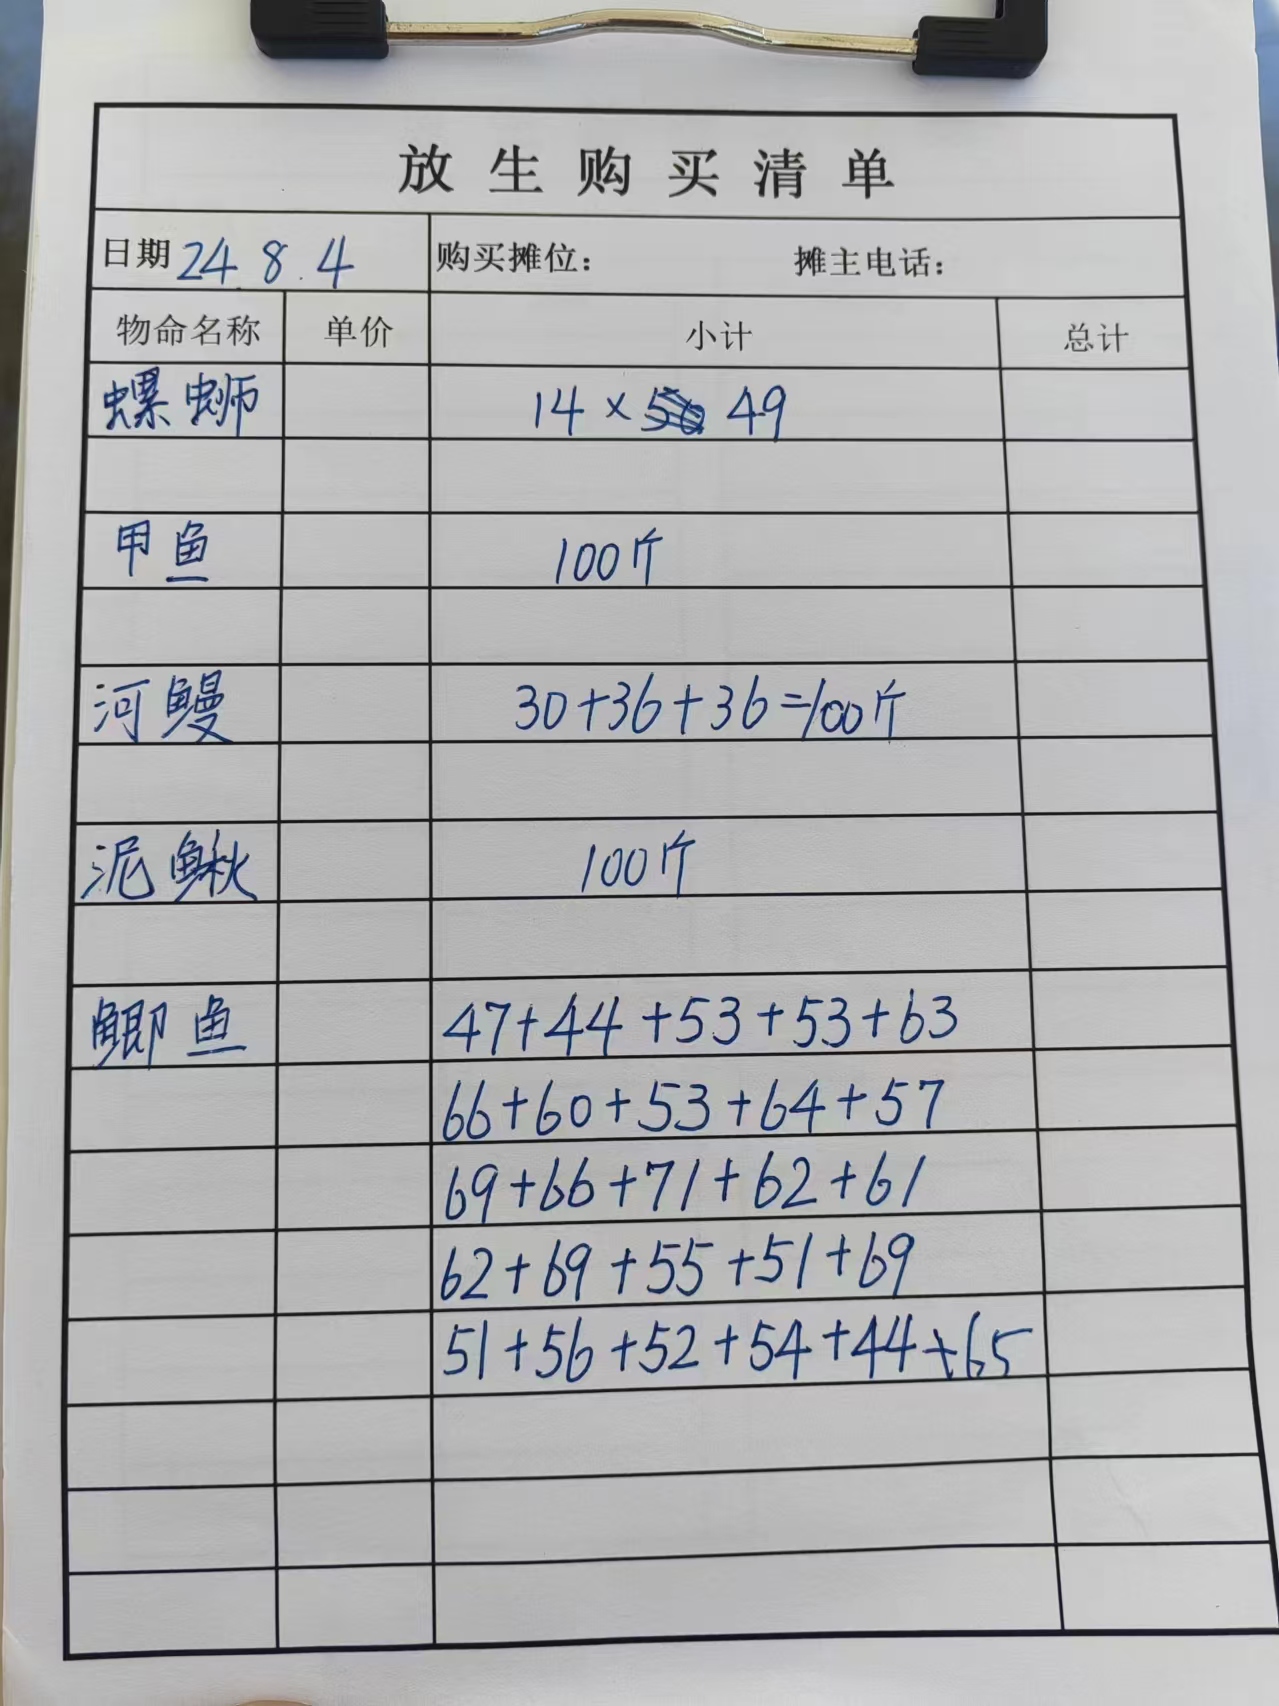 放生购买清单
日期 24.8.4 购买摊位： 摊主电话：
物命名称 单价 小计 总计
螺蛳 14×49
甲鱼 100斤
河鳗 30+36+36=100斤
泥鳅 100斤
鲫鱼 47+44+53+53+63
66+60+53+64+57
69+66+71+62+61
62+69+55+51+69
51+56+52+54+44+65